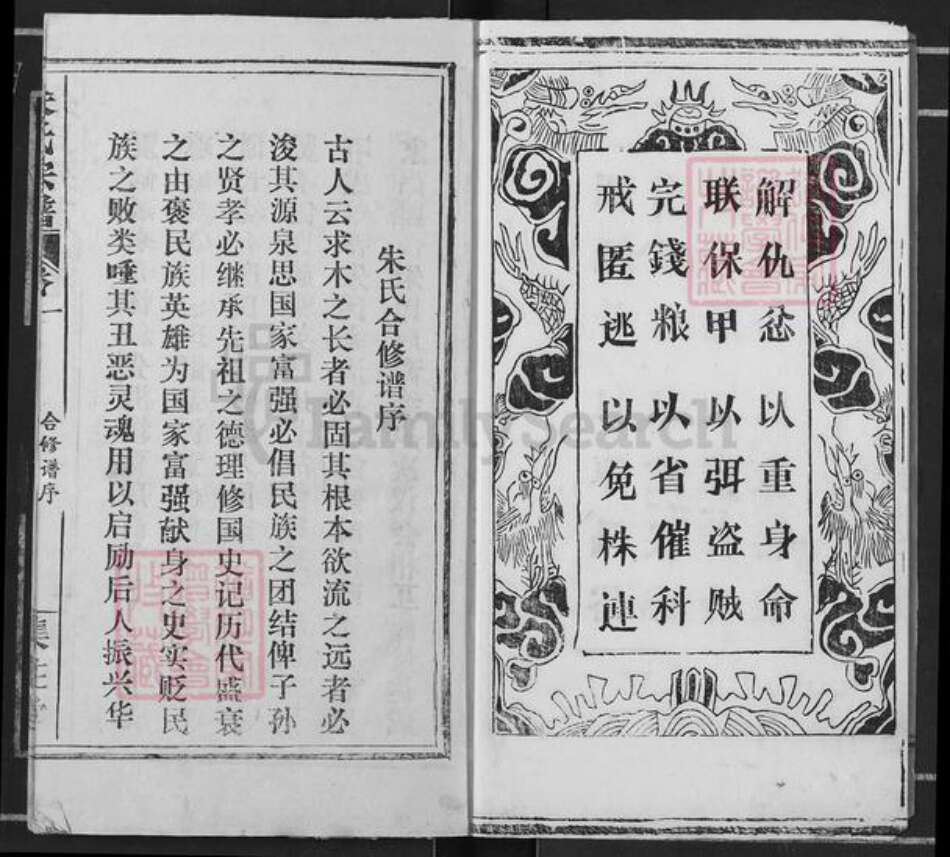 解仇忿 以重身命
联保甲 以弭盗贼
完錢粮 以省催科
戒匿逃 以免株連
朱氏合修谱序
古人云求木之长者必固其根本欲流之远者必
浚其源泉思国家富强必倡民族之团结俾子孙
之贤孝必继承先祖之德理修国史记历代盛衰
之由褒民族英雄为国家富强献身之史实贬民
族之败类唾其丑恶灵魂用以启励后人振兴华
氏宗譜 卷一
合修谱序
FamilySearch